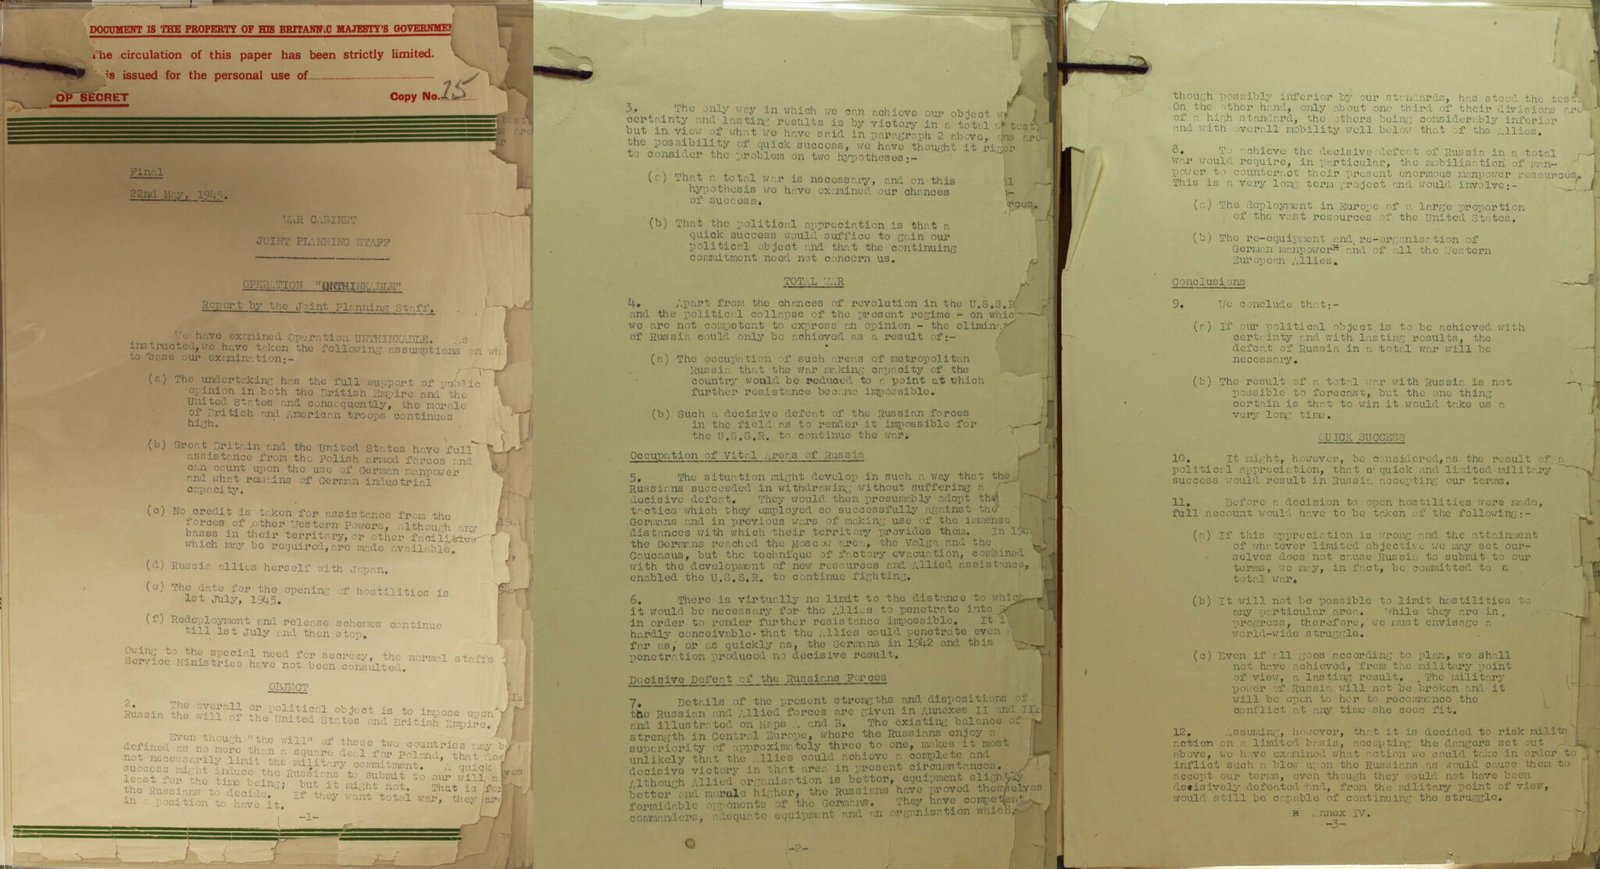 DOCUMENT IS THE PROPERTY OF HIS BRITANNIC MAJESTY'S GOVERNMEN
The circulation of this paper has been strictly limited.
is issued for the personal use of
OP SECRET
Copy No. 15
Final
22nd May, 1945.
WAR CABINET
JOINT PLANNING STAFF
OPERATION "UNTHINKABLE"
Report by the Joint Planning Staff.
We have examined Operation UNTHINKABLE. As
instructed, we have taken the following assumptions on wh
to base our examination:-
(a) The undertaking has the full support of public
opinion in both the British Empire and the
United States and consequently, the morale
of British and American troops continues
high.
(b) Great Britain and the United States have full
assistance from the Polish armed forces and
can count upon the use of German manpower
and what remains of German industrial
capacity.
(c) No credit is taken for assistance from the
forces of other Western Powers, although any
bases in their territory, or other facilities
which may be required, are made available.
(d) Russia allies herself with Japan.
(e) The date for the opening of hostilities is
1st July, 1945.
(f) Redeployment and release schemes continue
till 1st July and then stop.
Owing to the special need for secrecy, the normal staffs
Service Ministries have not been consulted.
OBJECT
2. The overall or political object is to impose upon
Russia the will of the United States and British Empire.
Even though "the will" of these two countries may b
defined as no more than a square deal for Poland, that doe
not necessarily limit the military commitment. A quick
success might induce the Russians to submit to our will a
least for the time being; but it might not. That is for
the Russians to decide. If they want total war, they are
in a position to have it.
-1-
3. The only way in which we can achieve our object w
certainty and lasting results is by victory in a total w
but in view of what we have said in paragraph 2 above, on
the possibility of quick success, we have thought it rig
to consider the problem on two hypotheses:-
(a) That a total war is necessary, and on this
hypothesis we have examined our chances
of success.
(b) That the political appreciation is that a
quick success would suffice to gain our
political object and that the continuing
commitment need not concern us.
TOTAL WAR
4. Apart from the chances of revolution in the U.S.S.R
and the political collapse of the present regime - on whic
we are not competent to express an opinion - the elimina
of Russia could only be achieved as a result of:-
(a) The occupation of such areas of metropolitan
Russia that the war making capacity of the
country would be reduced to a point at which
further resistance became impossible.
(b) Such a decisive defeat of the Russian forces
in the field as to render it impossible for
the U.S.S.R. to continue the war.
Occupation of Vital Areas of Russia
5. The situation might develop in such a way that the
Russians succeeded in withdrawing without suffering a
decisive defeat. They would then presumably adopt the
tactics which they employed so successfully against the
Germans and in previous wars of making use of the immense
distances with which their territory provides them. In 19
the Germans reached the Moscow area, the Volga and the
Caucasus, but the technique of factory evacuation, combined
with the development of new resources and Allied assistance,
enabled the U.S.S.R. to continue fighting.
6. There is virtually no limit to the distance to which
it would be necessary for the Allies to penetrate into
in order to render further resistance impossible. It i
hardly conceivable that the Allies could penetrate even
far as, or as quickly as, the Germans in 1942 and this
penetration produced no decisive result.
Decisive Defeat of the Russians Forces
7. Details of the present strengths and dispositions of
the Russian and Allied forces are given in Annexes II and III
and illustrated on Maps A and B. The existing balance of
strength in Central Europe, where the Russians enjoy a
superiority of approximately three to one, makes it most
unlikely that the Allies could achieve a complete and
decisive victory in that area in present circumstances.
Although Allied organisation is better, equipment slightly
better and morale higher, the Russians have proved themselves
formidable opponents of the Germans. They have competent
commanders, adequate equipment and an organisation which,
-2-
though possibly inferior by our standards, has stood the test.
On the other hand, only about one third of their divisions are
of a high standard, the others being considerably inferior
and with overall mobility well below that of the Allies.
8. To achieve the decisive defeat of Russia in a total
war would require, in particular, the mobilisation of man-
power to counteract their present enormous manpower resources.
This is a very long term project and would involve:-
(a) The deployment in Europe of a large proportion
of the vast resources of the United States.
(b) The re-equipment and re-organisation of
German manpower* and of all the Western
European Allies.
Conclusions
9. We conclude that:-
(a) If our political object is to be achieved with
certainty and with lasting results, the
defeat of Russia in a total war will be
necessary.
(b) The result of a total war with Russia is not
possible to forecast, but the one thing
certain is that to win it would take us a
very long time.
QUICK SUCCESS
10. It might, however, be considered, as the result of a
political appreciation, that a quick and limited military
success would result in Russia accepting our terms.
11. Before a decision to open hostilities were made,
full account would have to be taken of the following:-
(a) If this appreciation is wrong and the attainment
of whatever limited objective we may set our-
selves does not cause Russia to submit to our
terms, we may, in fact, be committed to a
total war.
(b) It will not be possible to limit hostilities to
any particular area. While they are in
progress, therefore, we must envisage a
world-wide struggle.
(c) Even if all goes according to plan, we shall
not have achieved, from the military point
of view, a lasting result. The military
power of Russia will not be broken and it
will be open to her to recommence the
conflict at any time she sees fit.
12. Assuming, however, that it is decided to risk milit
action on a limited basis, accepting the dangers set out
above, we have examined what action we could take in order to
inflict such a blow upon the Russians as would cause them to
accept our terms, even though they would not have been
decisively defeated and, from the military point of view,
would still be capable of continuing the struggle.
* Annex IV.
-3-